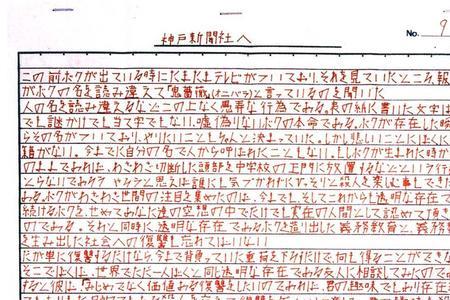 神戸新聞社へ
No. 9
この前ボクが出ている時にたまたまテレビがついており、それを見ていたところ、報
がボクの名を読み違えて「鬼薔薇」(オニバラ)と言っているのを聞いた
人の名を読み違えるなどこの上なく愚弄な行為である。表の紙に書いた文字は
でも謎かけでも当て字でもない、嘘偽りないボクの本命である。ボクが存在した時
らその名がついており、やりたいこともちゃんと決まっていた。しかし悲しいことにぼくに
籍がない。今までに自分の名で人から呼ばれたこともない。もしボクが生まれた時か
のままであれば、わざわざ切断した頭部を中学校の正門に放置するなどという行
とらないであろう やろうと思えば誰にも気づかれずにひっそりと殺人を楽しむ事もでき
ある。ボクがわざわざ世間の注目を集めたのは、今までも、そしてこれからも透明な存在で
続けるボクを、せめてあなた達の空想の中でだけでも実在の人間として認めて頂き
のである。それと同時に、透明な存在であるボクを造り出した義務教育と、義務教
を生み出した社会への復讐も忘れてはいない
だが単に復讐するだけなら、今まで背負っていた重荷を下ろすだけで、何も得ることができな
そこでぼくは、世界でただ一人ぼくと同じ透明な存在である友人に相談してみたので
ると彼は、「みじめでなく価値ある復讐をしたいのであれば、君の趣味でもあり存在